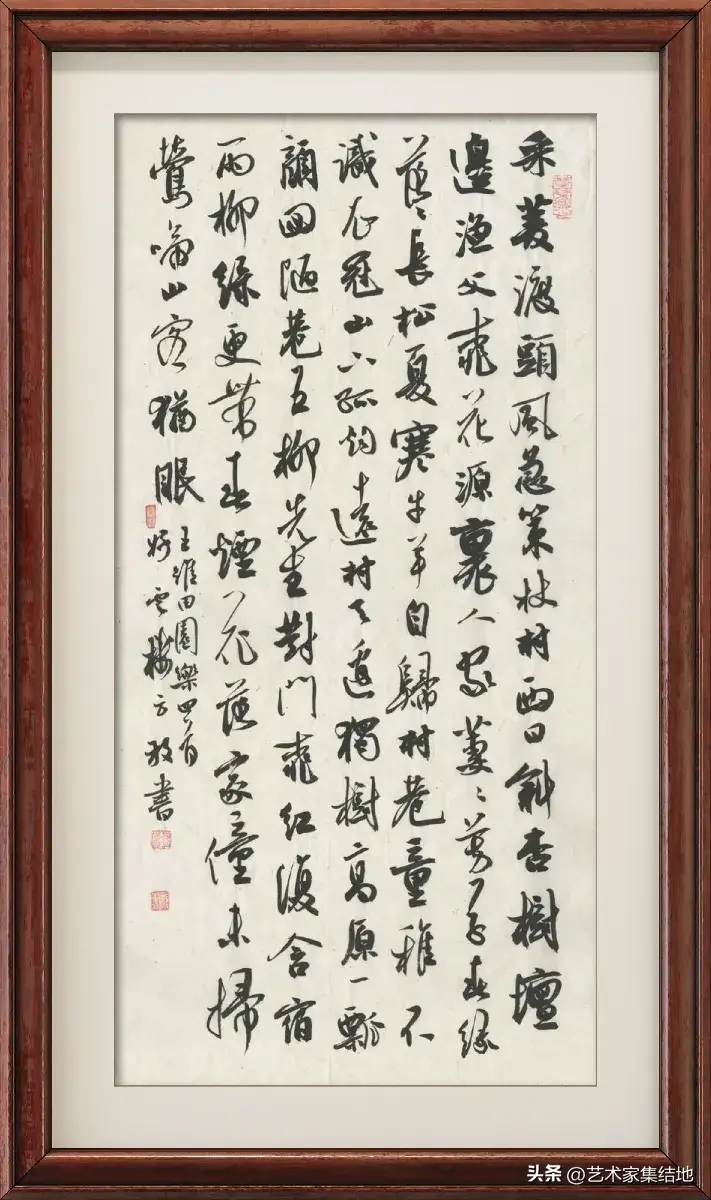 采菱渡頭風急策杖村西日斜杏樹壇
邊漁父桃花源裏人家萋々芳草春綠
落々長松夏寒牛羊自歸村巷童稚不
識衣冠山下孤烟遠村天邊獨樹高原一瓢
顏回陋巷五柳先生對門桃紅復含宿
雨柳綠更帶春煙花落家僮未掃
鶯啼山客猶眠
王維田園樂四首
書
头条 @艺术家集结地